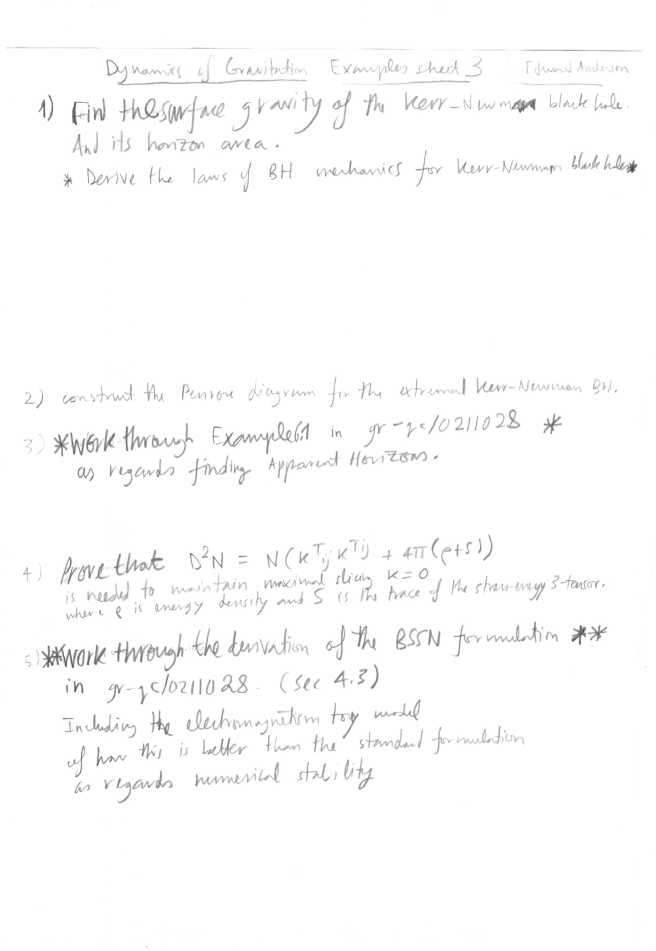 Dynamics of Gravitation Examples sheet 3 Edward Anderson
1) Find the surface gravity of the Kerr-Newman black hole.
And its horizon area.
* Derive the laws of BH mechanics for Kerr-Newman black holes*
2) construct the Penrose diagram for the extremal Kerr-Newman BH.
3) *Work through Example 6.1 in gr-qc/0211028 *
as regards finding Apparent Horizons.
4) Prove that D²N = N(K^T_ij K^Tij + 4π(ρ+S))
is needed to maintain maximal slicing K=0
where ρ is energy density and S is the trace of the stress-energy 3-tensor.
5) **Work through the derivation of the BSSN formulation **
in gr-qc/0211028. (Sec 4.3)
Including the electromagnetism toy model
of how this is better than the standard formulation
as regards numerical stability